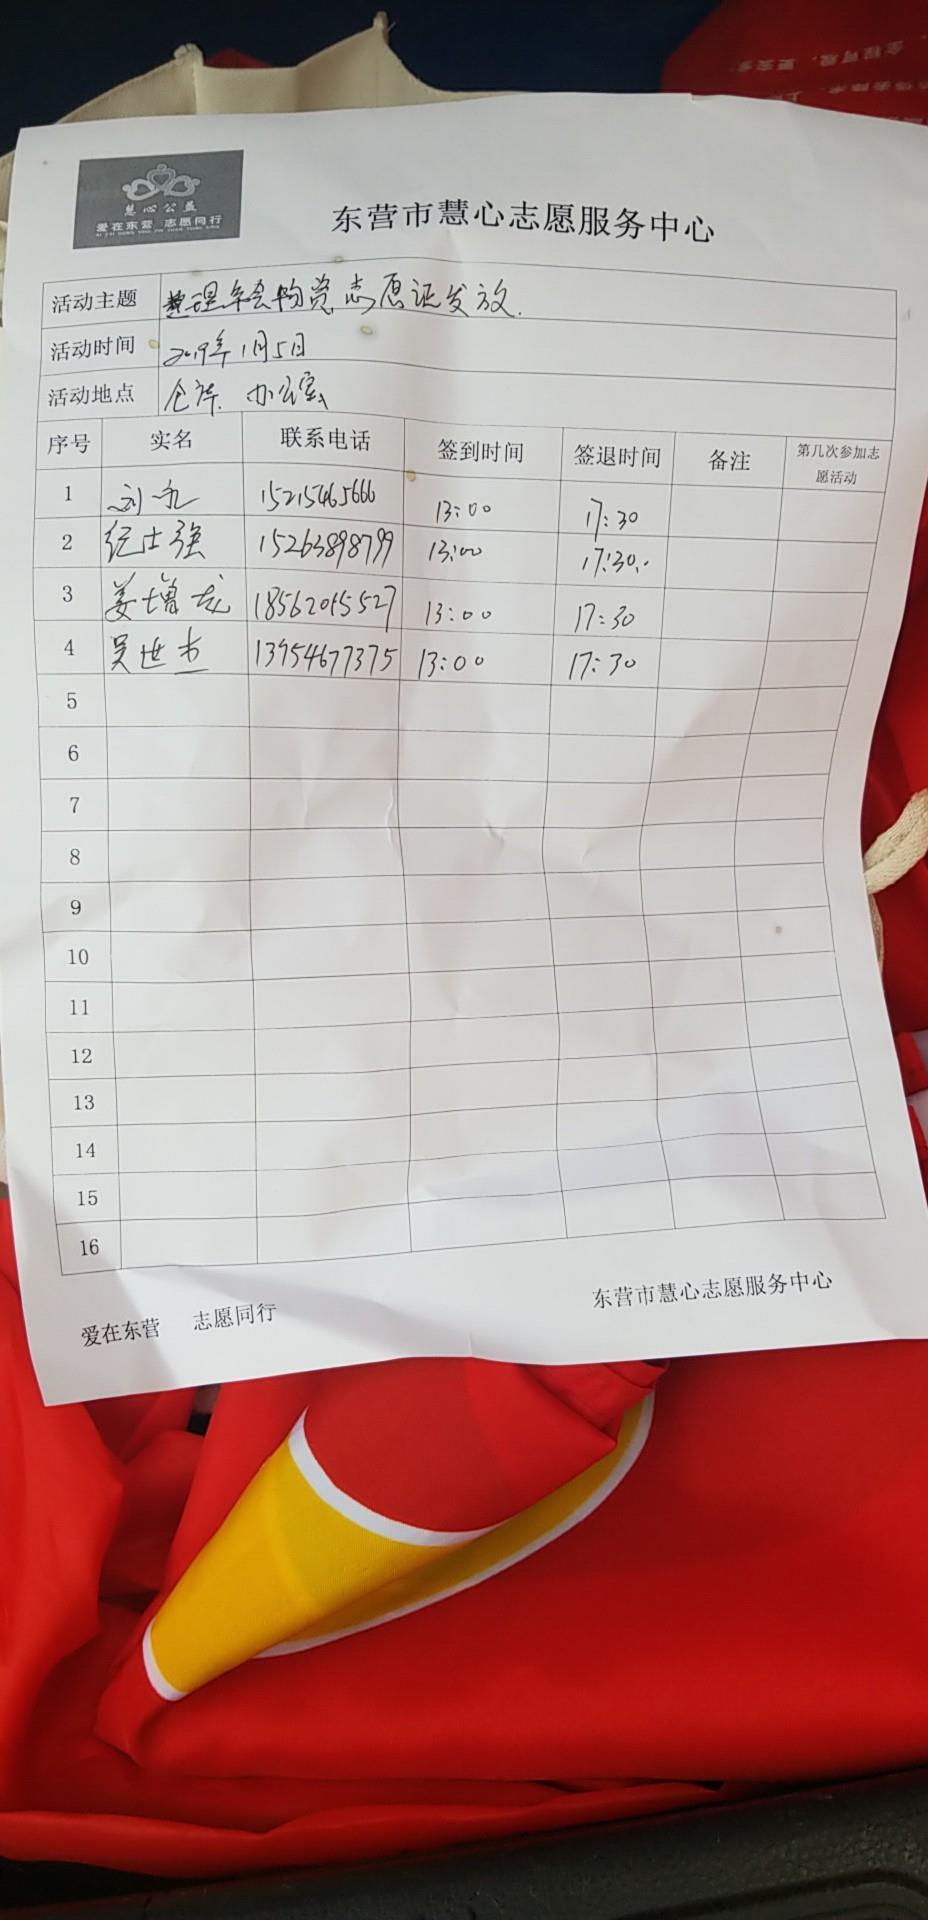 慧心公益
爱在东营 志愿同行
东营市慧心志愿服务中心
活动主题 整理年会物资 志愿证发放.
活动时间 2019年1月5日
活动地点 仓库. 办公室
序号 实名 联系电话 签到时间 签退时间 备注 第几次参加志愿活动
1 刘 15215465666 13:00 17:30
2 纪士强 15263898799 13:00 17:30..
3 姜增龙 18562015527 13:00 17:30
4 吴世杰 13954677375 13:00 17:30
5
6
7
8
9
10
11
12
13
14
15
16
爱在东营 志愿同行 东营市慧心志愿服务中心